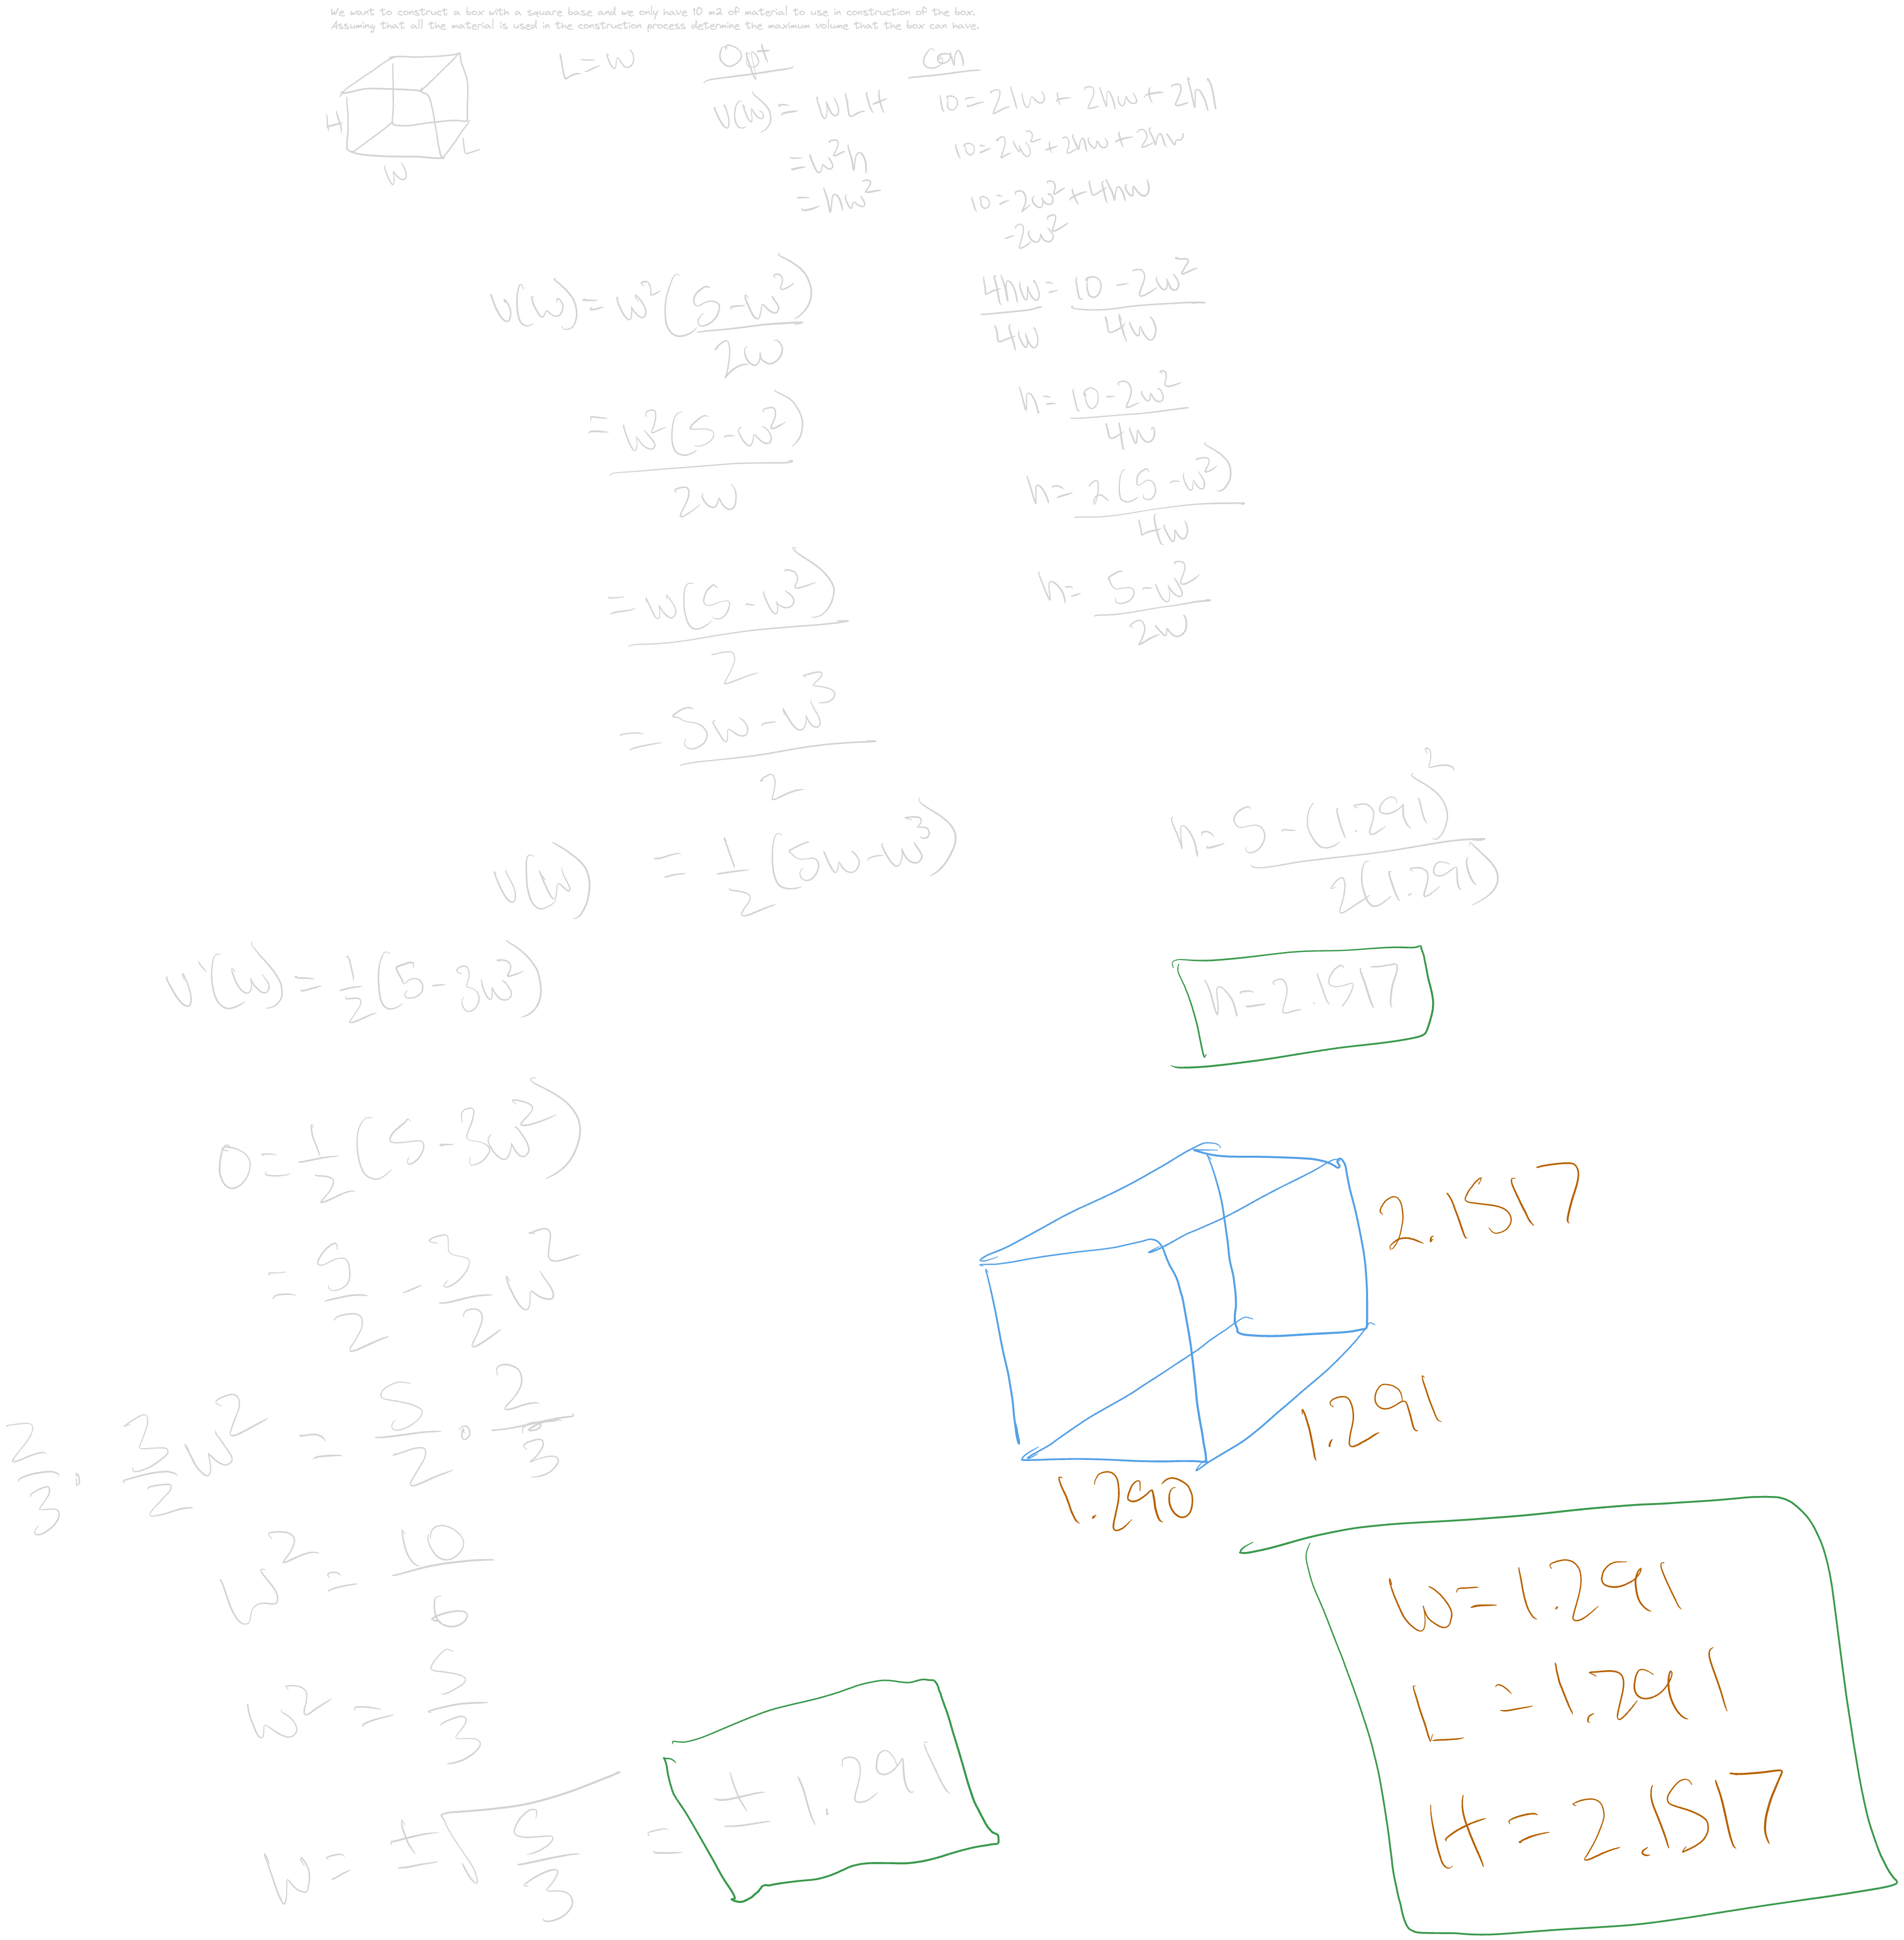 We want to construct a box with a square base and we only have 10 m2 of material to use in construction of the box.
Assuming that all the material is used in the construction process determine the maximum volume that the box can have.
H
W
L
L=W
Opt
V(w)= WLH
=w²h
=hw²
Con
10=2lw+2hw+2hl
10=2w²+2hw+2hw
10=2w²+4hw
-2w²
4hw/4w = (10-2w²)/4w
h=(10-2w²)/4w
h=2(5-w²)/4w
h=(5-w²)/2w
V(w)=w²((5-w²)/2w)
=w²(5-w²)/2w
=w(5-w²)/2
=(5w-w³)/2
V(w) = 1/2(5w-w³)
h=(5-(1.291)²)/2(1.291)
h=2.1517
V'(w)=1/2(5-3w²)
0=1/2(5-3w²)
=5/2-3/2w²
2/3·3/2w²=5/2·2/3
w²=10/6
w²=5/3
w=±√5/3 = ±1.291
2.1517
1.291
1.290
W=1.291
L=1.291
H=2.1517